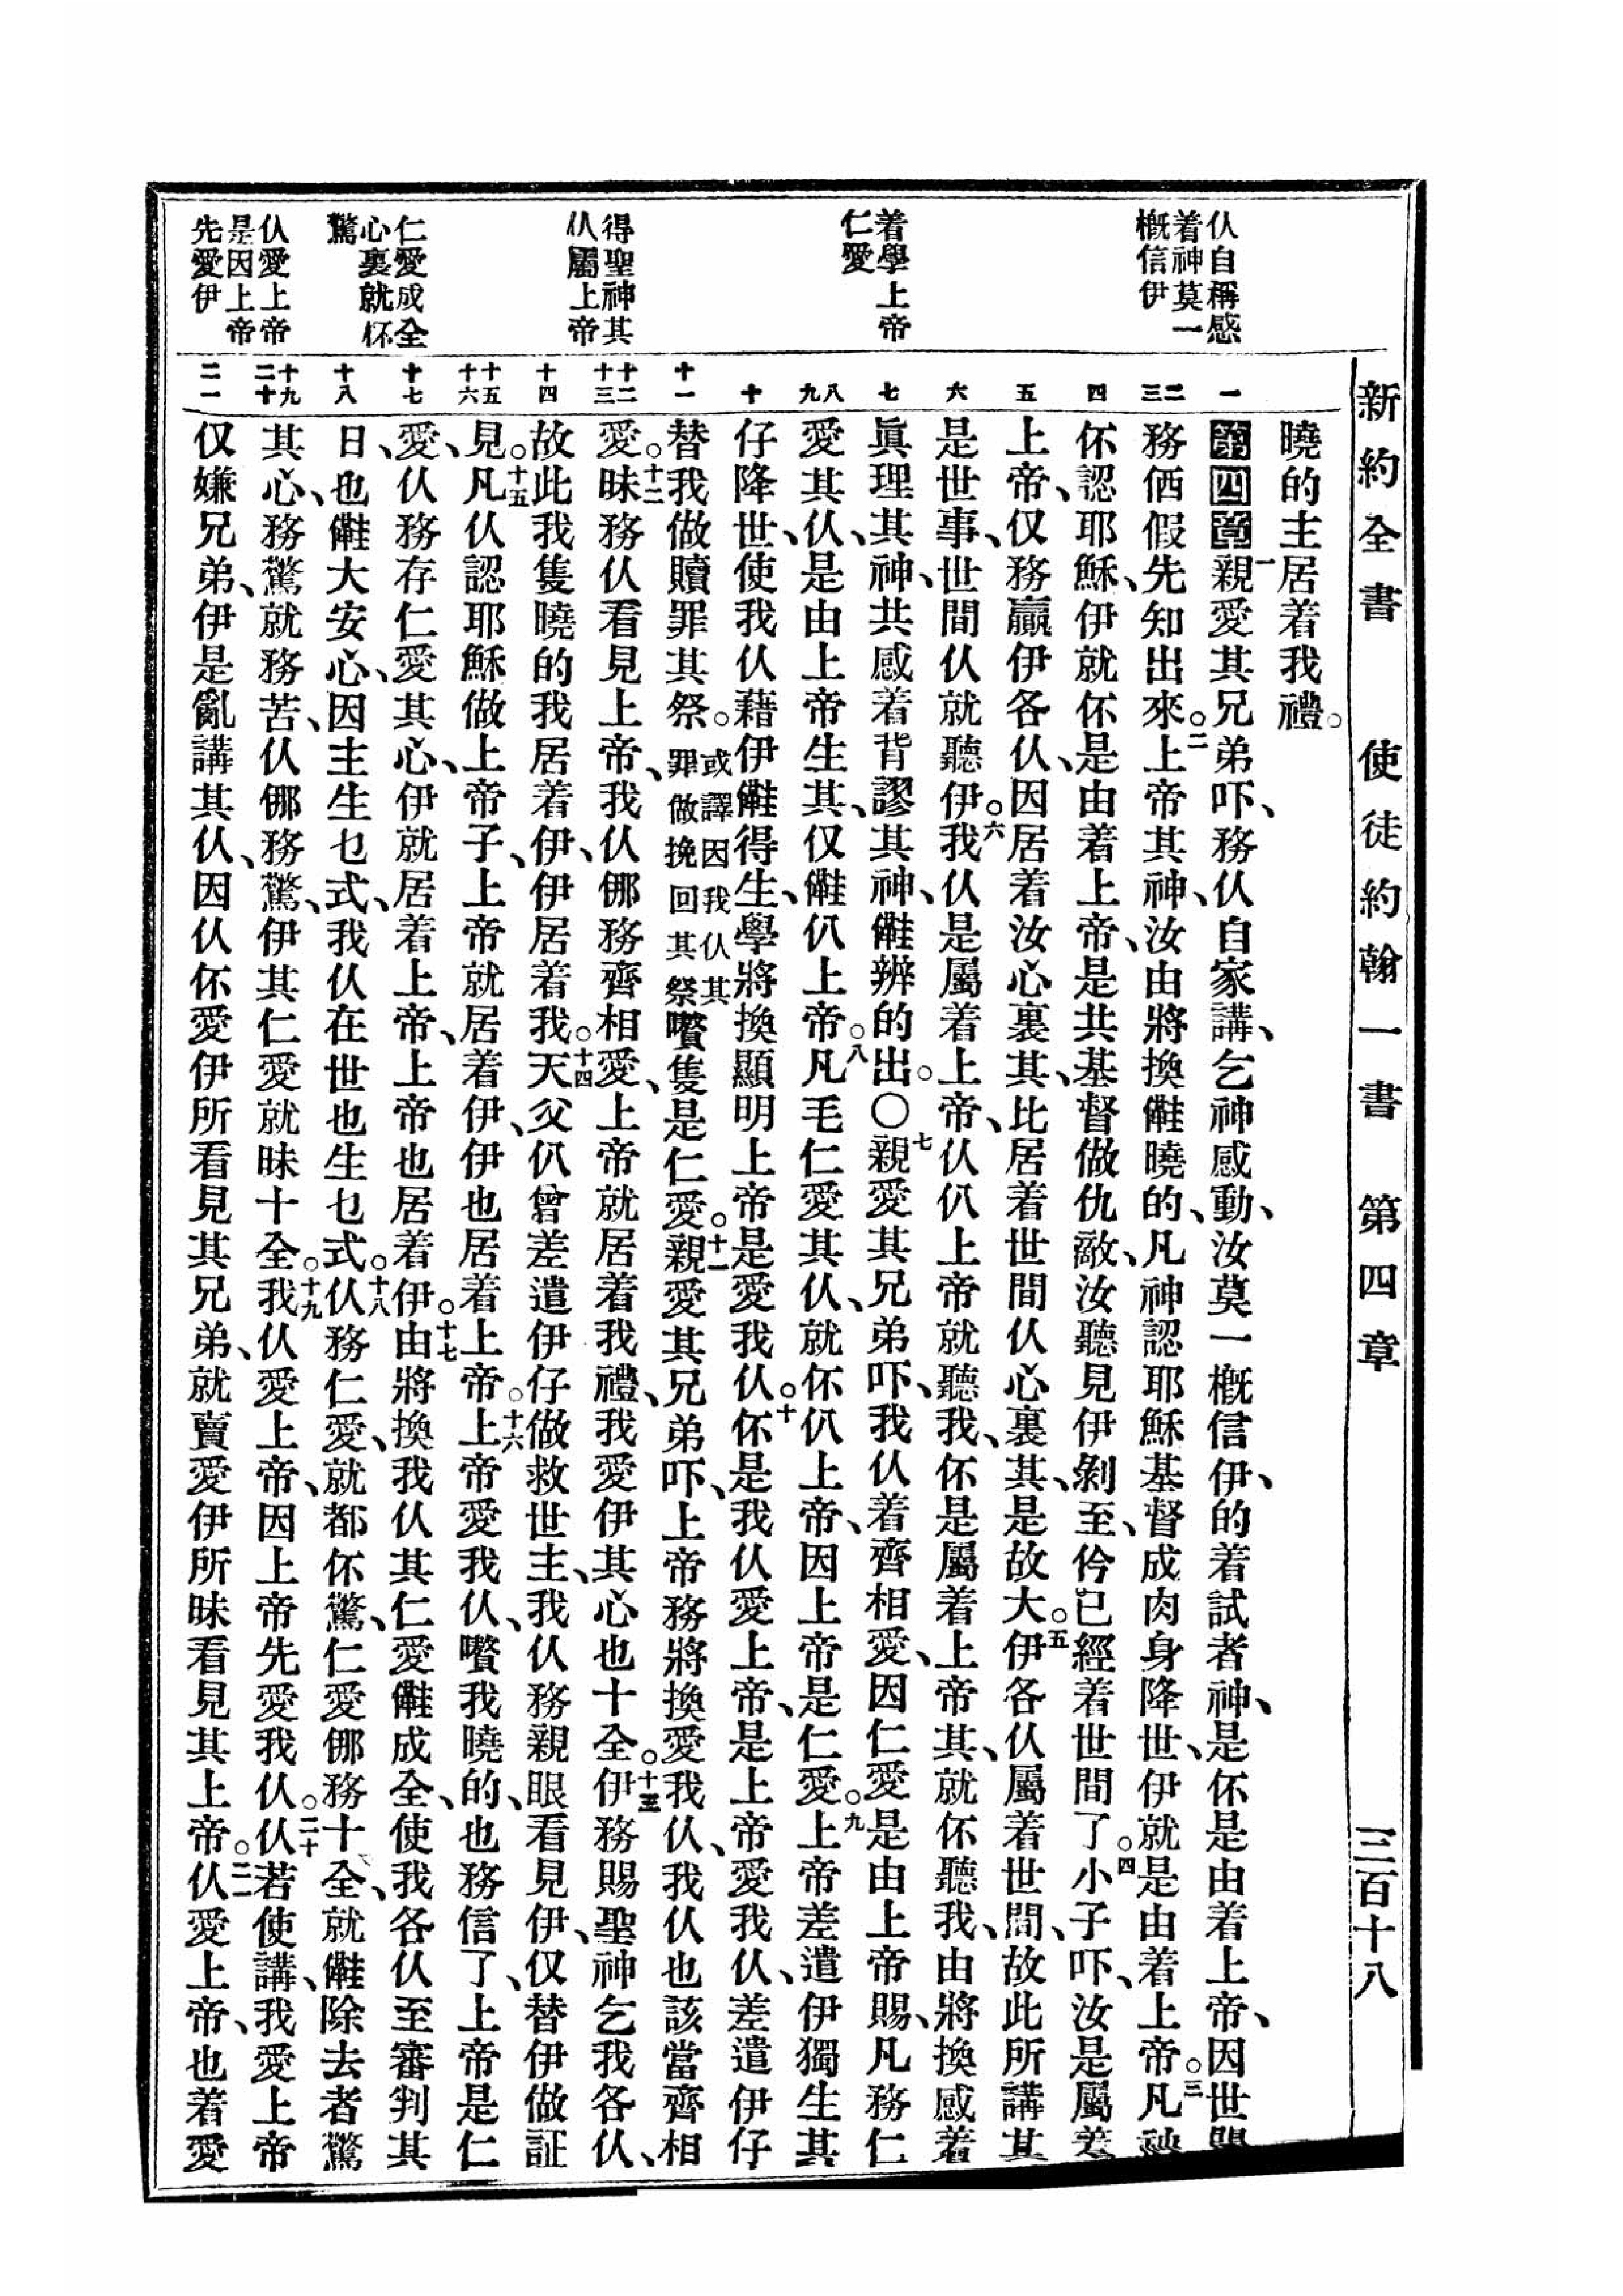 新約全書 使徒約翰一書 第四章 三百十八
仈自稱感
着神莫一
概信伊
着學上帝
仁愛
得聖神其
仈屬上帝
仁愛成全
心裏就怀
驚
仈愛上帝
是因上帝
先愛伊
一
二
三
四
五
六
七
八
九
十
十一
十二
十三
十四
十五
十六
十七
十八
十九
二十
二一
曉的主居着我禮。
第四章一親愛其兄弟吓、務仈自家講、乞神感動、汝莫一概信伊、的着試者神、是伓是由着上帝、因世間
務価假先知出來。二上帝其神、汝由將換曉的、凡神認耶穌基督成肉身降世、伊就是由着上帝。三凡神
伓認耶穌、伊就伓是由着上帝、是共基督做仇敵、汝聽見伊剝至、仱已經着世間了。四小子吓、汝是屬着
上帝、仅務贏伊各仈、因居着汝心裏其、比居着世間仈心裏其、是故大。五伊各仈屬着世間、故此所講其
是世事、世間仈就聽伊。六我仈是屬着上帝、仈仈上帝就聽我、伓是屬着上帝其、就伓聽我、由將換感着
眞理其神、共感着背謬其神、辨的出。〇七親愛其兄弟吓、我仈着齊相愛、因仁愛是由上帝賜、凡務仁
愛其仈、是由上帝生其、仅仈上帝。八凡毛仁愛其仈、就伓仈上帝、因上帝是仁愛。九上帝差遣伊獨生其
仔降世、使我仈藉伊得生、學將換顯明上帝是愛我仈。十伓是我仈愛上帝、是上帝愛我仈、差遣伊仔
替我做贖罪其祭。或譯因我仈其罪做挽回其祭嚽隻是仁愛。十一親愛其兄弟吓、上帝務將換愛我仈、我仈也該當齊相
愛。十二昧務仈看見上帝、我仈㑚務齊相愛、上帝就居着我禮、我愛伊其心也十全。十三伊務賜聖神乞我各仈、
故此我隻曉的我居着伊、伊居着我。十四天父仈曾差遣伊仔做救世主、我仈務親眼看見伊、仅替伊做証
見。十五凡仈認耶穌做上帝子、上帝就居着伊、伊也居着上帝。十六上帝愛我仈、嚽我曉的、也務信了、上帝是仁
愛、仈務存仁愛其心、伊就居着上帝、上帝也居着伊。十七由將換我仈其仁愛成全、使我各仈至審判其
日、也大安心、因主生乜式、我仈在世也生乜式。十八仈務仁愛、就都伓驚、仁愛㑚務十全、就除去者驚
其心、務驚就務苦、仈㑚務驚、伊其仁愛就昧十全。十九我仈愛上帝、因上帝先愛我仈。二十仈若使講、我愛上帝
仅嫌兄弟、伊是亂講其仈、因仈伓愛伊所看見其兄弟、就賣愛伊所昧看見其上帝。二一仈愛上帝、也着愛